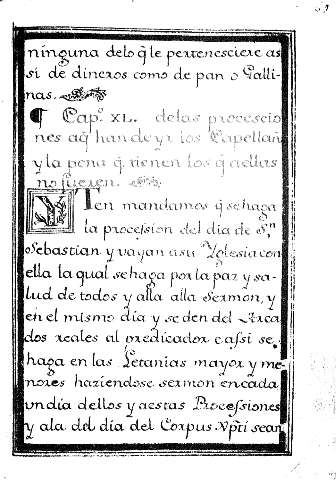 ninguna delo q̃ le pertenesciere as
si de dineros como de pan o Galli
nas.
¶ Capº. XL. delas procescio
nes aq̃ han de yr los Capellañ
y la pena q̃ tienen los q̃ a ellas
no fueren.
Yten mandamos q̃ se haga
la procession del dia de Sⁿ
Sebastian y vayan a su Yglesia con
ella la qual se haga por la paz y sa-
lud de todos y alla alla Sermon, y
en el mismo dia y se den del Arca
dos reales al predicador e assi se
haga en las Letanias mayor y me-
nores haziendose sermon en cada
un dia dellos y a estas Processiones
y ala del dia del Corpus Xp̃ti sean